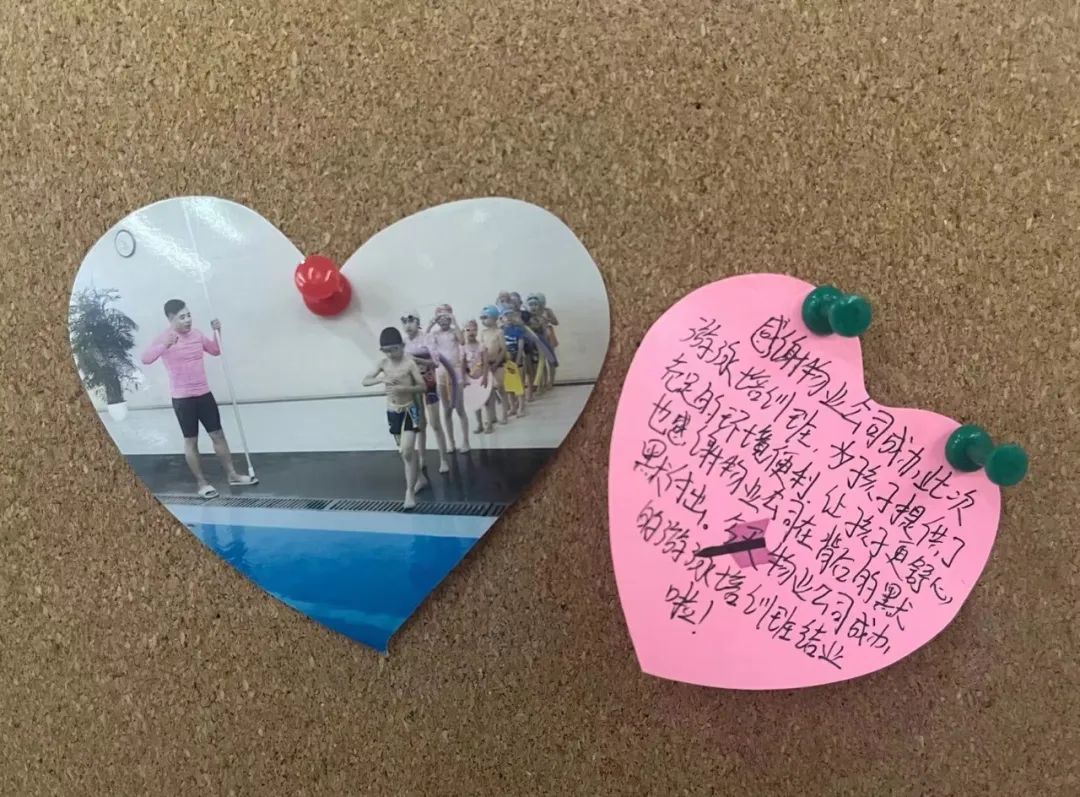 感谢物业公司成办此次
游泳培训班,为孩子提供了
充足的环境便利,让孩子更舒心,
也感谢物业公司在背后的默
默付出。物业公司成办
的游泳培训班结业
啦!